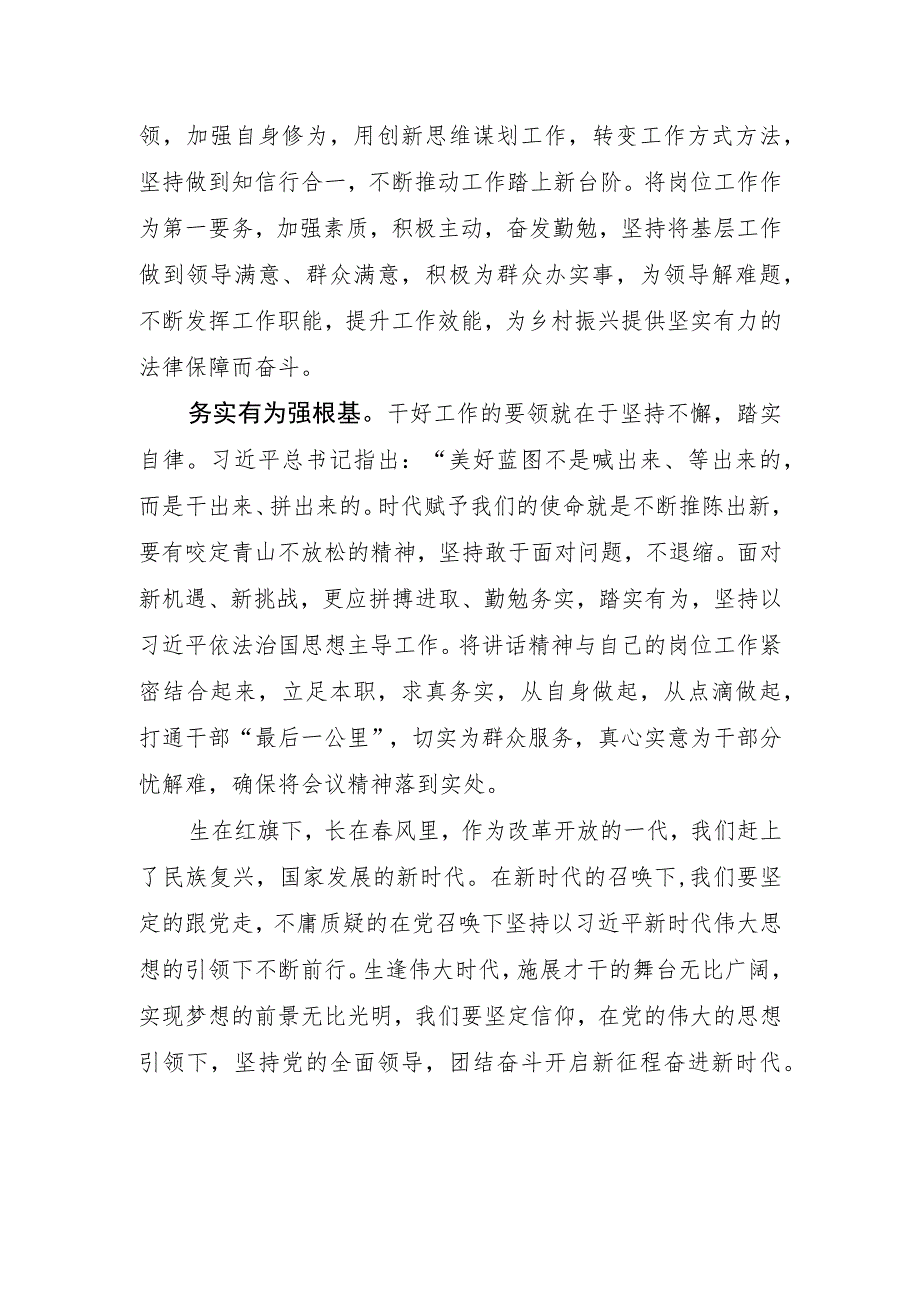 领，加强自身修为，用创新思维谋划工作，转变工作方式方法，
坚持做到知信行合一，不断推动工作踏上新台阶。将岗位工作作
为第一要务，加强素质，积极主动，奋发勤勉，坚持将基层工作
做到领导满意、群众满意，积极为群众办实事，为领导解难题，
不断发挥工作职能，提升工作效能，为乡村振兴提供坚实有力的
法律保障而奋斗。
务实有为强根基。干好工作的要领就在于坚持不懈，踏实
自律。习近平总书记指出：“美好蓝图不是喊出来、等出来的，
而是干出来、拼出来的。时代赋予我们的使命就是不断推陈出新，
要有咬定青山不放松的精神，坚持敢于面对问题，不退缩。面对
新机遇、新挑战，更应拼搏进取、勤勉务实，踏实有为，坚持以
习近平依法治国思想主导工作。将讲话精神与自己的岗位工作紧
密结合起来，立足本职，求真务实，从自身做起，从点滴做起，
打通干部“最后一公里”，切实为群众服务，真心实意为干部分
忧解难，确保将会议精神落到实处。
生在红旗下，长在春风里，作为改革开放的一代，我们赶上
了民族复兴，国家发展的新时代。在新时代的召唤下,我们要坚
定的跟党走，不庸质疑的在党召唤下坚持以习近平新时代伟大思
想的引领下不断前行。生逢伟大时代，施展才干的舞台无比广阔，
实现梦想的前景无比光明，我们要坚定信仰，在党的伟大的思想
引领下，坚持党的全面领导，团结奋斗开启新征程奋进新时代。